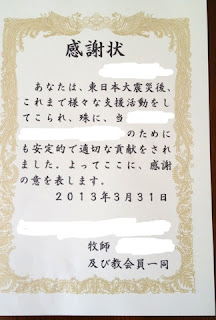 感謝状
あなたは、東日本大震災後、
これまで様々な支援活動をし
てこられ、殊に、当
のためにも
も安定的で適切な貢献をされ
ました。よってここに、感謝
の意を表します。
2013年3月31日
牧師
及び教会員一同